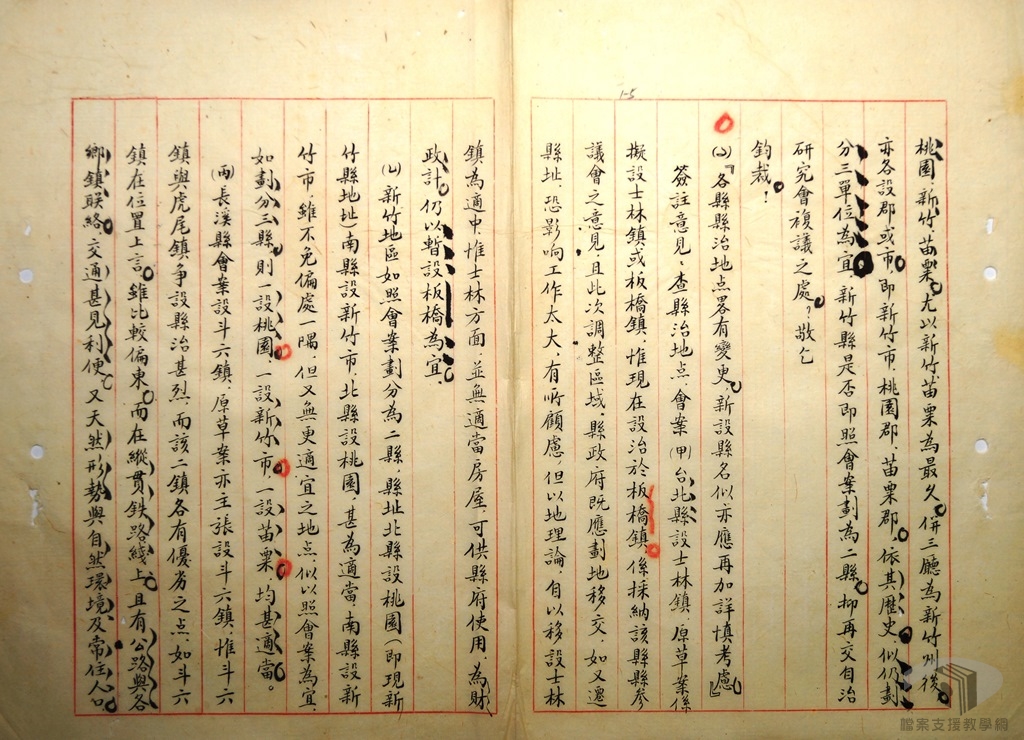 1-5
桃園、新竹、苗栗。尤以新竹苗栗為最久。併三廳為新竹州後。
亦各設郡或市。即新竹市、桃園郡、苗栗郡。依其歷史、似仍劃
分三單位為宜。新竹縣是否即照會案劃為二縣。抑再交自治
研究會複議之處。？敬乞
鈞裁。！
(二)『各縣縣治地点畧有變更。新設縣名似亦應再加詳慎考慮』
簽註意見、查縣治地点、會案(甲)台北縣設士林鎮、原草案係
擬設士林鎮或板橋鎮、惟現在設治於板橋鎮。係採納該縣縣參
議會之意見、且此次調整區域、縣政府既應劃地移交、如又遷
縣址、恐影响工作太大、有所顧慮、但以地理論、自以移設士林
鎮為適中、惟士林方面、並無適當房屋、可供縣府使用、為財
政計。仍以暫設板橋為宜。
(乙)新竹地區如照會案劃分為二縣、縣址北縣設桃園(即現新
竹縣地址)南縣設新竹市、北縣設桃園、甚為適當、南縣設新
竹市、雖不免偏處一隅、但又無更適宜之地点、似以照會案為宜、
如劃分三縣、則一設桃園。一設新竹市。一設苗栗。均甚適當。
(丙)長溪縣會案設斗六鎮、原草案亦主張設斗六鎮、惟斗六
鎮與虎尾鎮爭設縣治甚烈、而該二鎮各有優劣之点、如斗六
鎮在位置上言。雖比較偏東。而在縱貫鉄路綫上。且有公路與各
鄉鎮联絡。交通甚見利便。又天然形勢與自然環境及常住人口。
檔案支援教學網